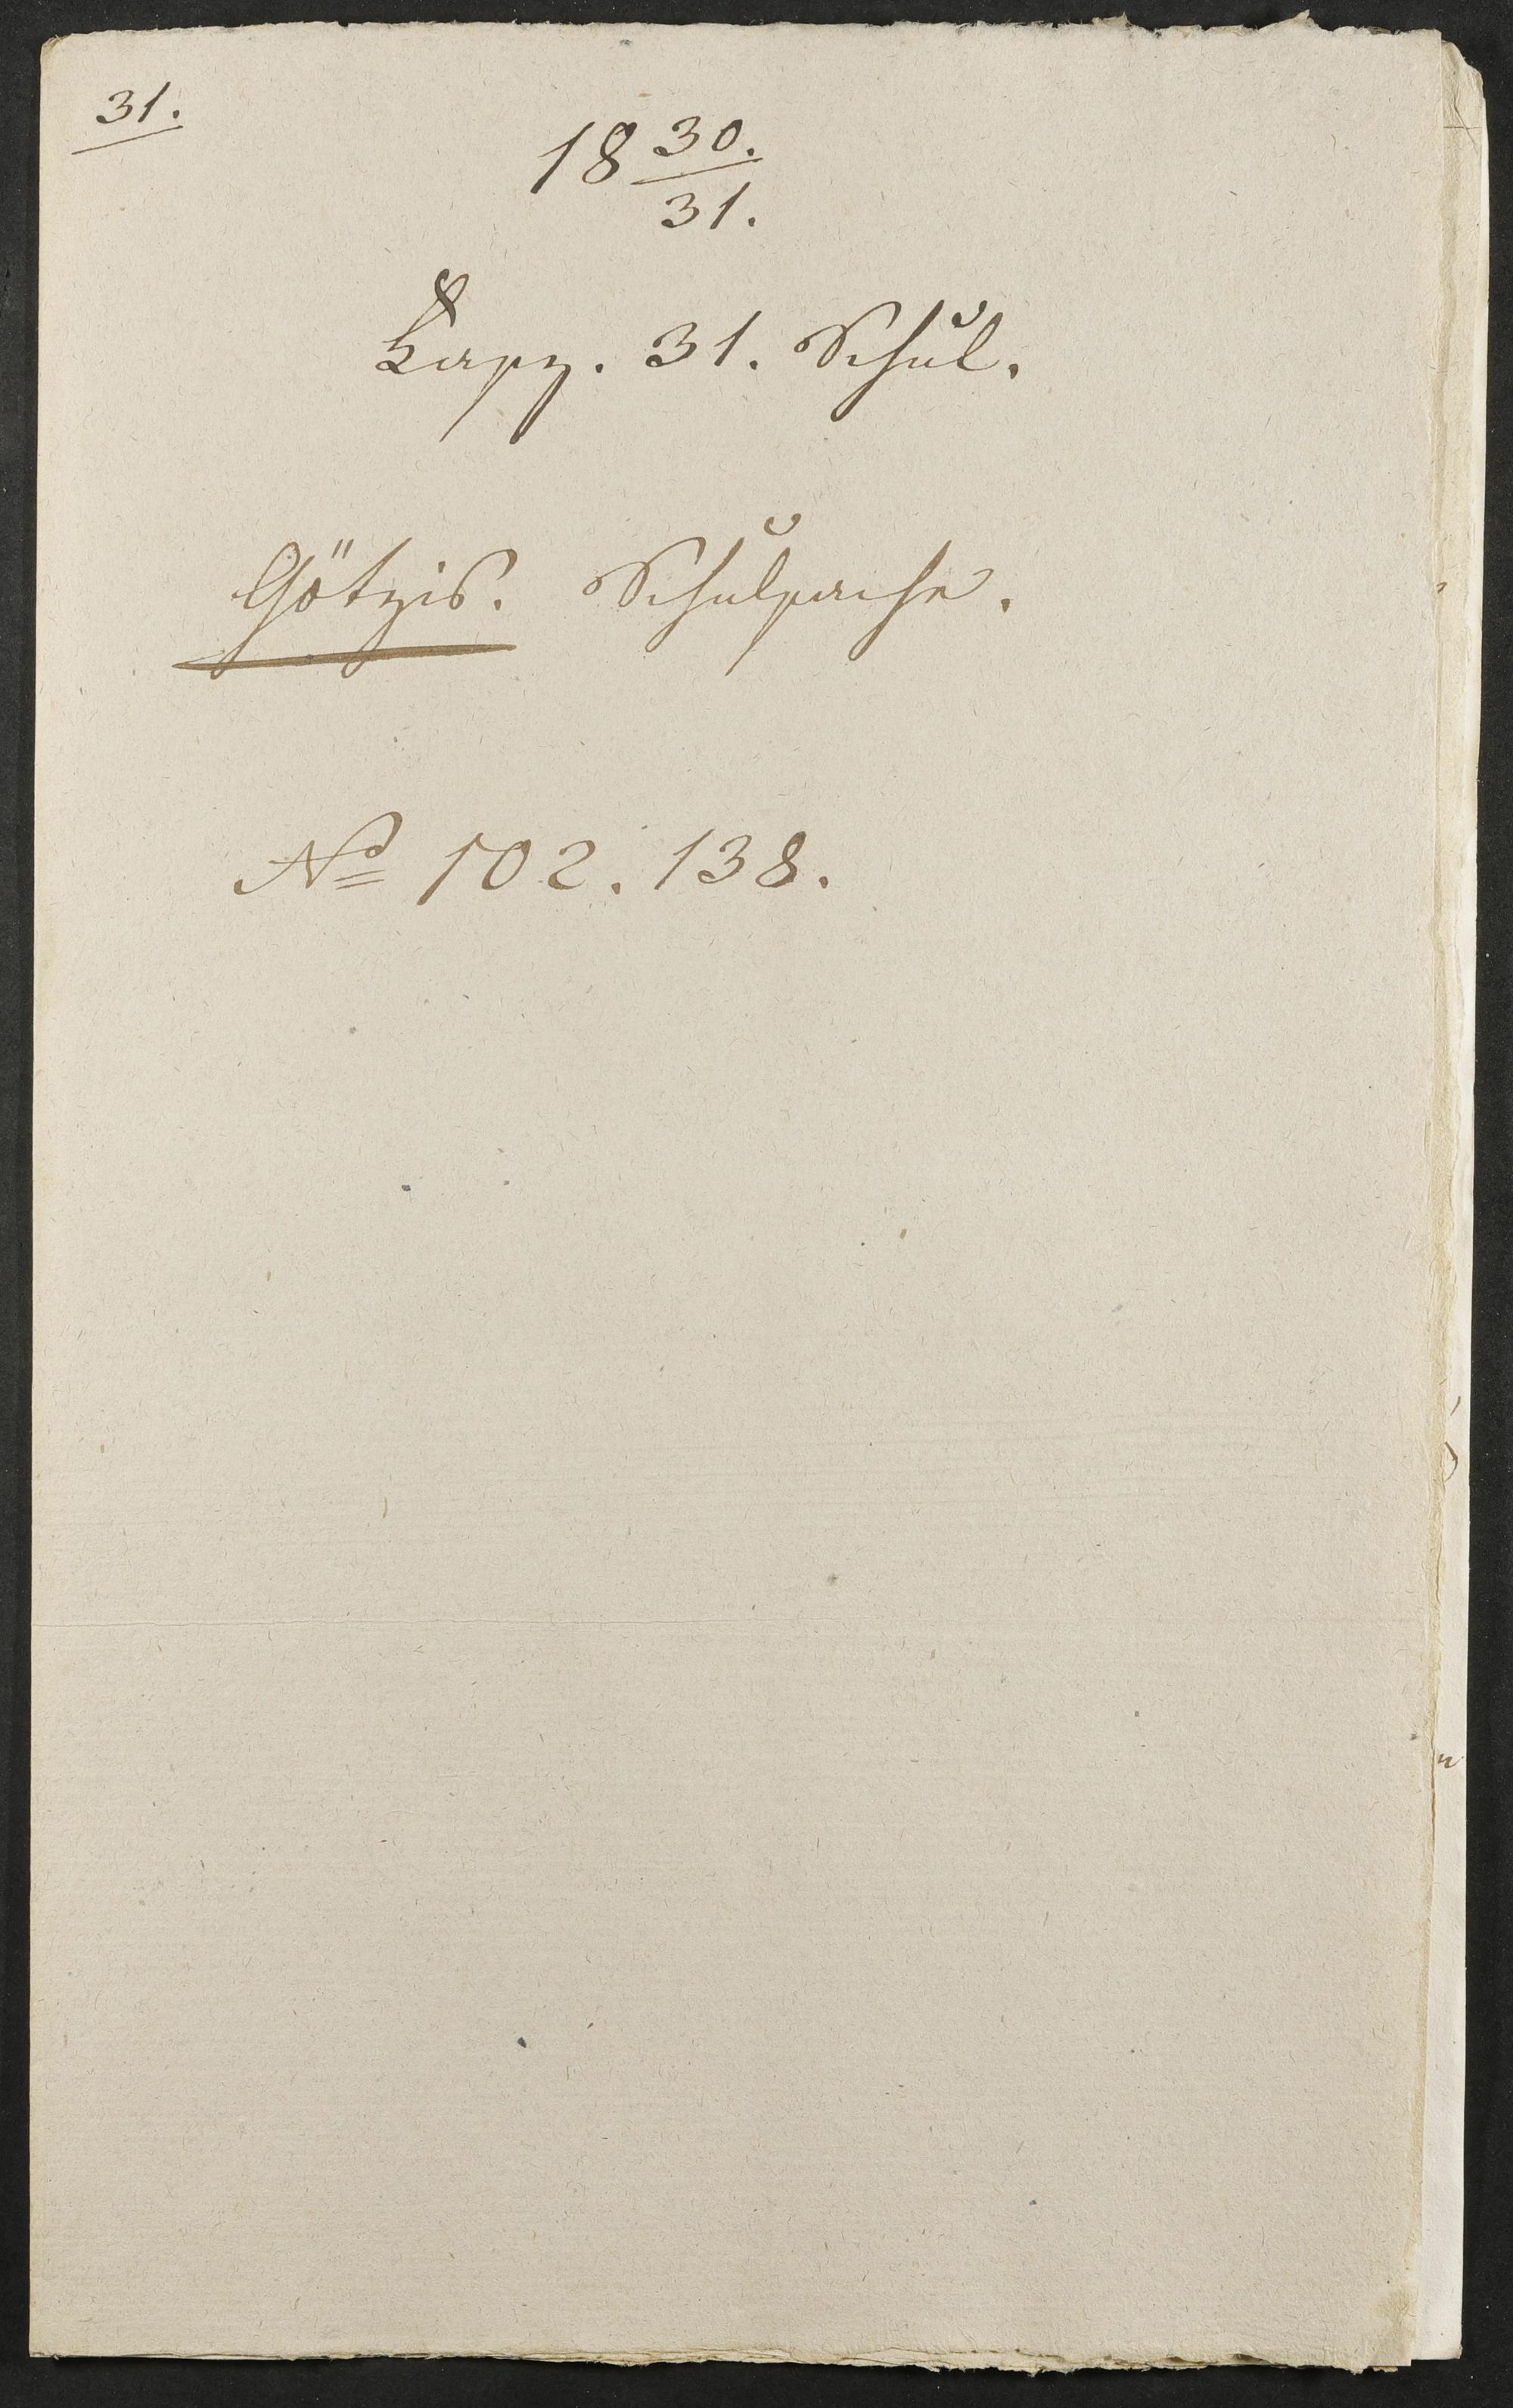 31.
18 30./31.
Fasz. 31. Schul.
Götzis. Schulsache.
No 102. 138.